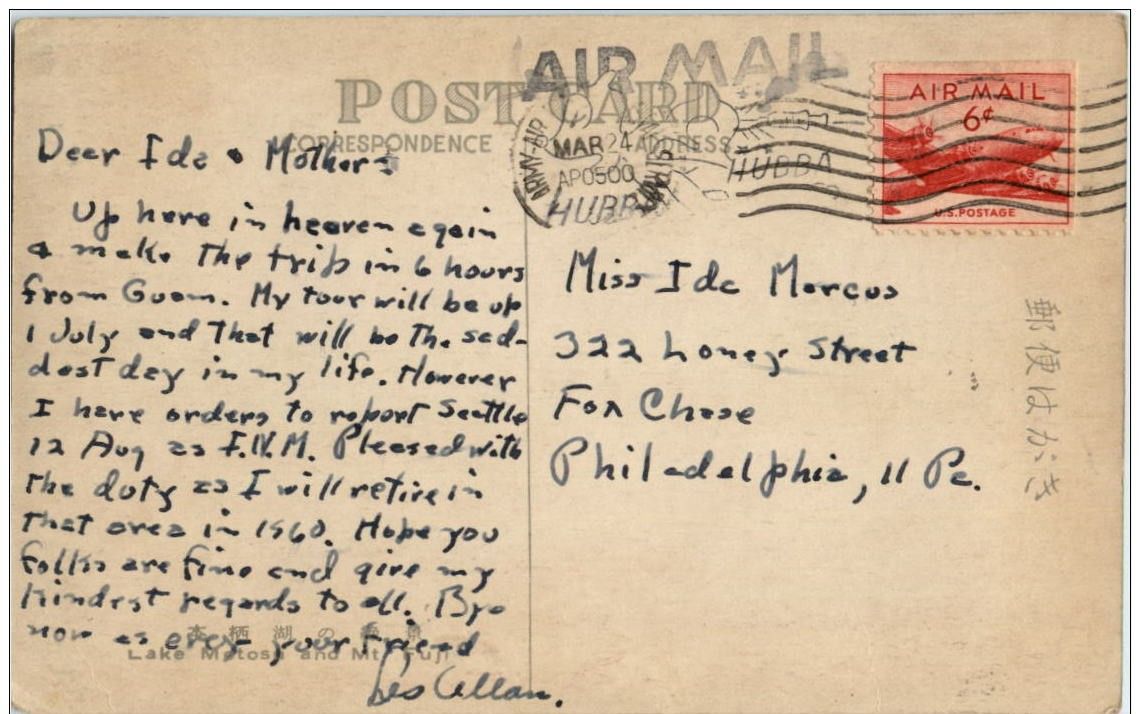 AIR MAIL
POST CARD
CORRESPONDENCE
ADDRESS
ARMY-AIR
MAR 24
APO500
HUBBA
HUBBA
AIR MAIL
6¢
U.S.POSTAGE
Dear Ida & Mother:
Up here in heaven again
& make the trip in 6 hours
from Guam. My tour will be up
1 July and that will be the sad-
dest day in my life. However
I have orders to report Seattle
12 Aug as I.N.M. Pleased with
the duty as I will retire in
that area in 1960. Hope you
folks are fine and give my
kindest regards to all. Bye
now as ever your friend
Les Allan.
湖の
Lake Motosu and Mt. Fuji
Miss Ida Marcus
322 Loney Street
Fox Chase
Philadelphia, 11 Pa.
郵便はがき